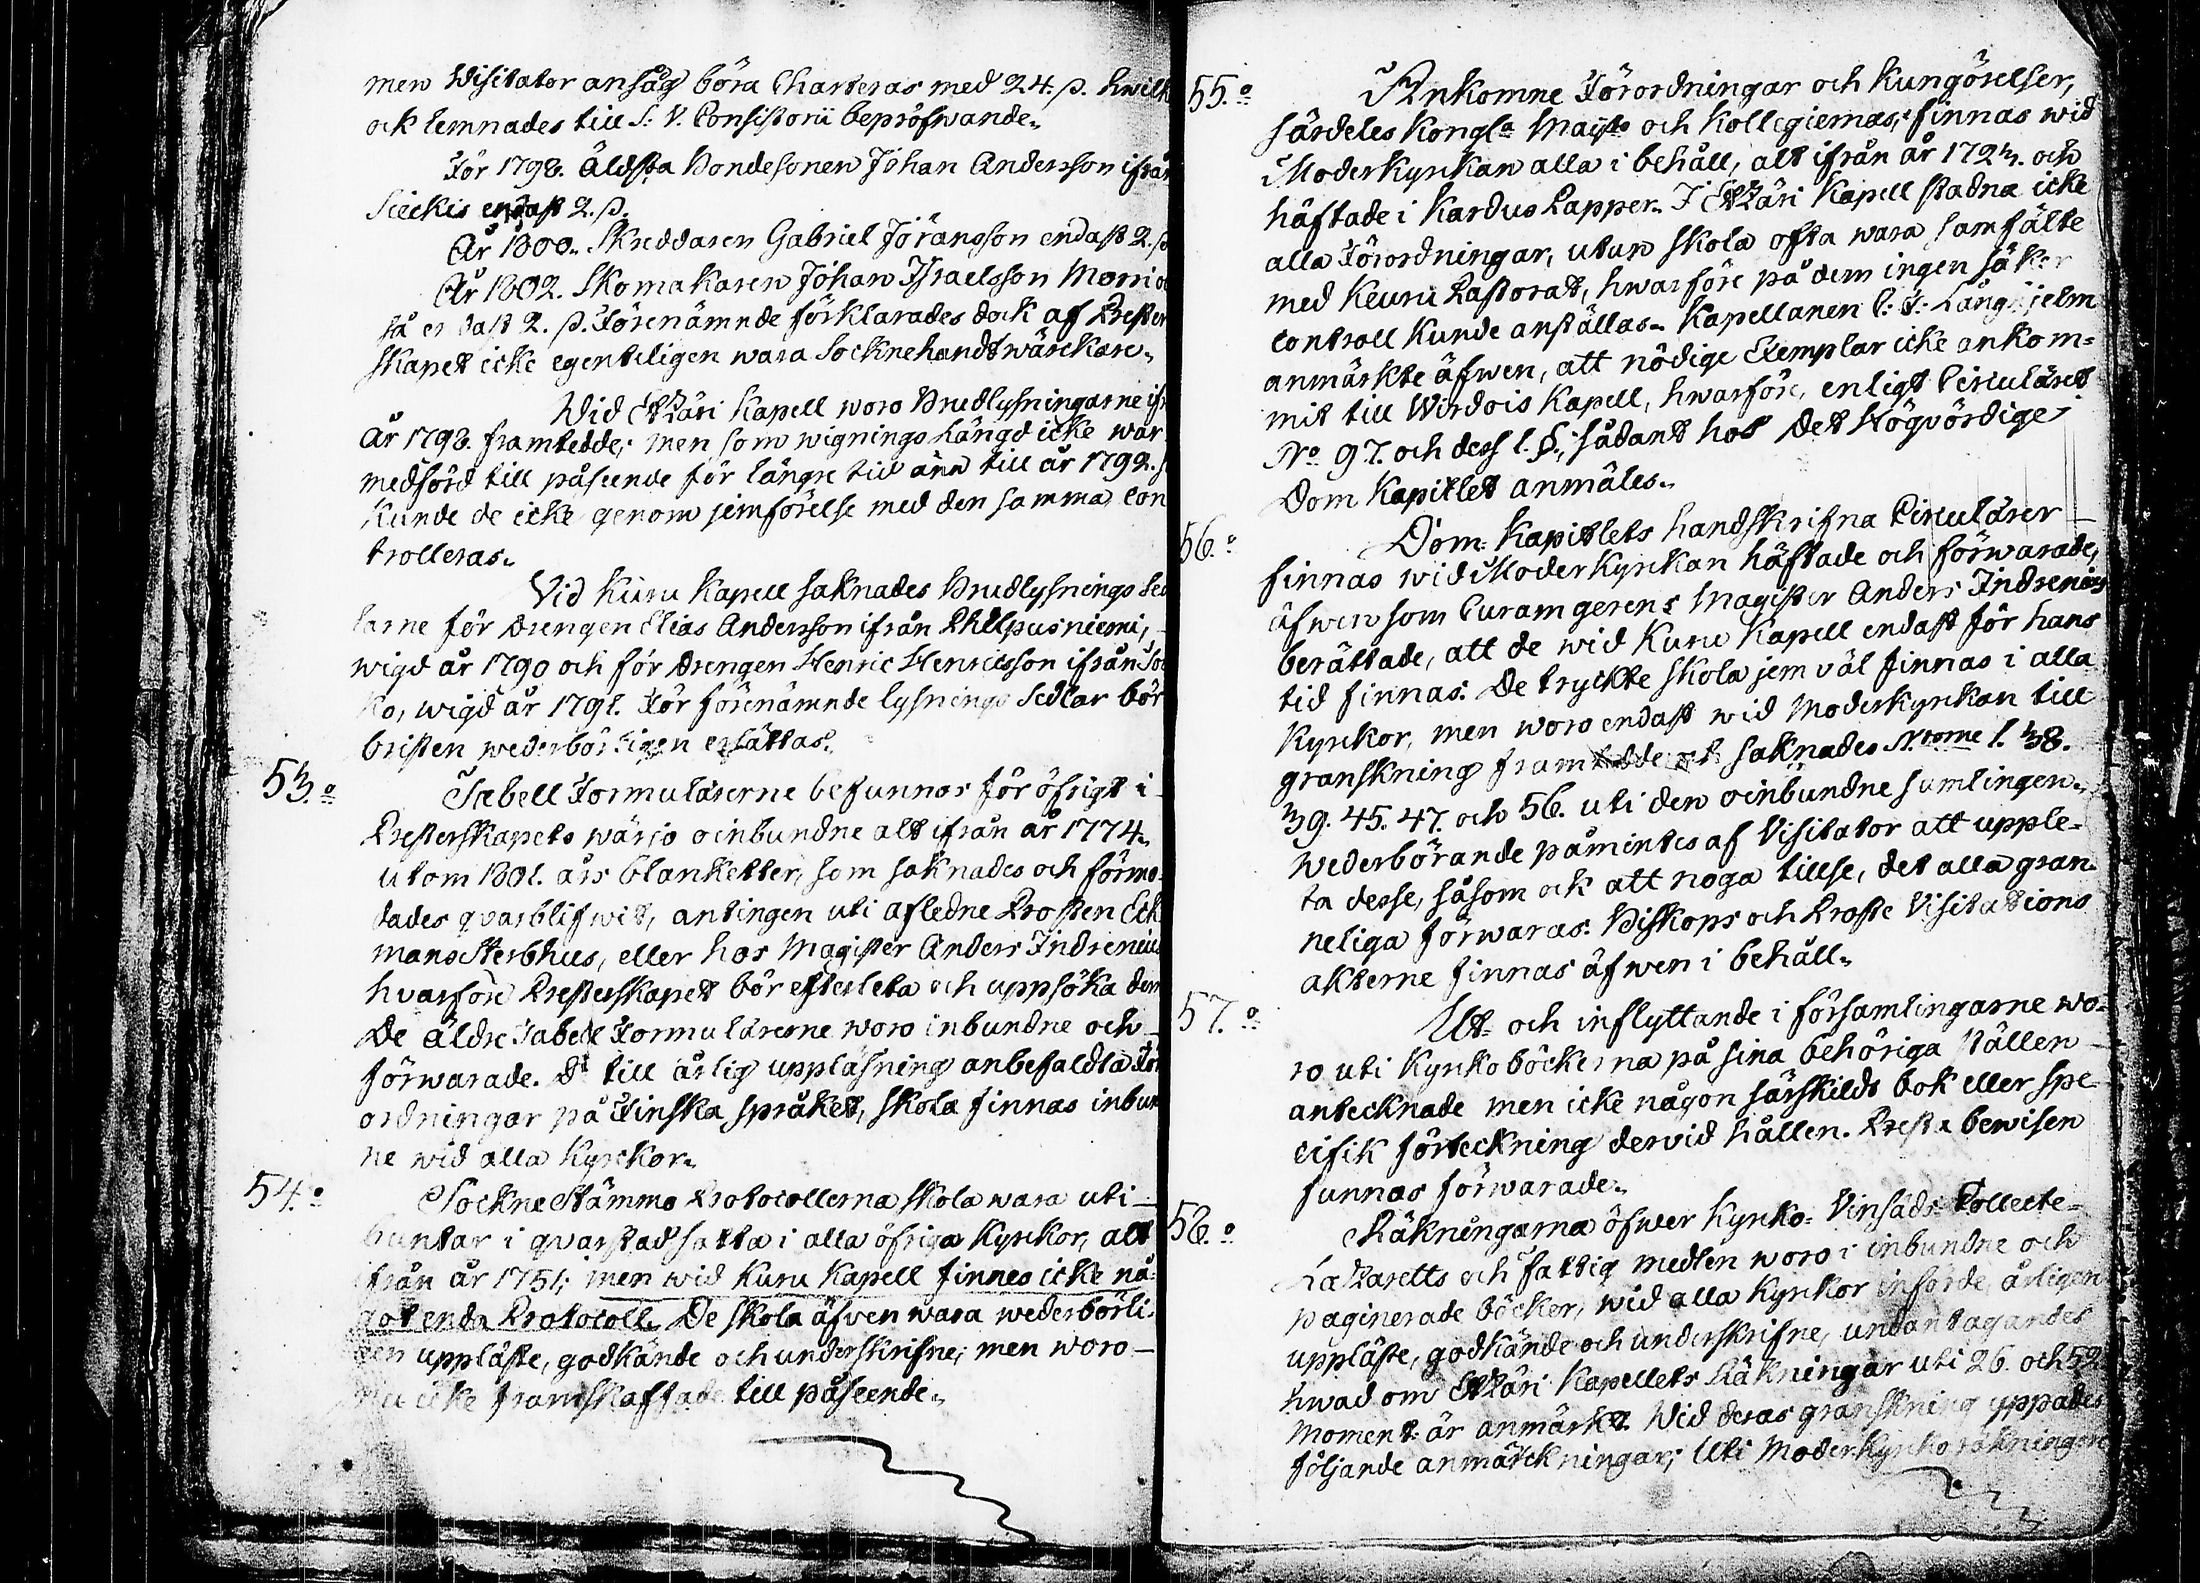 men Visitator ansåg böra Charteras med 24. ß. hwilk
ock lemnades till S: V. Consistorii bepröfwande.
För 1798. Äldsta Bondesonen Johan Andersson ifrån
Sieckis endast 2. ß.
År 1800. Skreddaren Gabriel Jöransson endast 2. ß
År 1802. Skomakaren Johan Israelsson
så endast 2. ß. Förenämnde förklarades dock af Prester
skapet icke egenteligen wara Socknehandtwärckare.
Wid Etzäri Kapell woro Brudlysningarne ifr
år 1798. framtedde; men som wignings längd icke war
medförd till påseende för längre tid änn till år 1792. så
kunde de icke genom jemförelse med den samma con
trolleras.
Vid Kuru Kapell saknades Brudlysnings Sed
larne för Drengen Elias Andersson ifrån Philpusniemi,
wigd år 1790 och för Drengen Henric Henricsson ifrån
ko, wigd år 1791. För förenämnde lysnings Sedlar bör
bristen wederbörligen ersättas.
53.o Tabell Formulärerne befunnos för öfrigt i
Presterskapets wärjo oinbundne alt ifrån år 1774.
utom 1801. års blanketter, som saknades och förmo
dades qvarblifwit, antingen uti afledne Prosten Eck
mans Sterbhus, eller hos Magister Anders Indrenius
hvarföre Presterskapet bör efterleta och uppsöka dem
De äldre Tabell Formulärerne woro inbundne och
förwarade. De till årlig uppläsning anbefaldta För
ordningar på Finska språket, skola finnas inbun
ne wid alla Kyrckor.
54.o Sockne Stämmo Protocollerna skola wara uti
buntar i qvarstad satta i alla öfriga Kyrckor, alt
ifrån år 1751; men wid Kuru Kapell finnes icke nå-
got enda Protocoll. De skola äfven wara wederbörli-
gen uppläste, godkände och underskrifne; men woro
nu icke framskaffade till påseende.
55.o Ankomne Förordningar och Kungörelser,
särdeles Kongl. Maijts och Kollegiernas, finnas wid
Moderkyrkan alla i behåll, alt ifrån år 1723. och
häftade i Kardus Papper. I Etzäri Kapell stadna icke
alla Förordningar, utan skola ofta wara samfälte
med Keuru Pastorat, hwarföre på dem ingen säker
controll kunde anställas. Kapellanen C: J: Långhjelm
anmärkte äfwen, att nödige Exemplar icke ankom-
mit till Wirdois Kapell, hwarföre, enligt Cirkuläret
No 97. och dess 1. §., sådant hos Det Högvördige
Dom Kapitlet anmäles.
56.o Dom Kapitlets handskrifna Cirkulärer
finnas wid Moderkyrkan häftade och förwarade,
äfwen som Curam gerens Magister Anders Indrenius
berättade, att de wid Kuru Kapell endast för hans
tid finnas. De tryckte skola jemväl finnas i alla
Kyrckor, men woro endast wid Moderkyrkan till
granskning framtedde och saknades N:rorne 1. 38.
39. 45. 47. och 56. uti den oinbundne samlingen.
Wederbörande påmintes af Visitator att upple-
ta desse, såsom ock att noga tillse, det alla gran-
neliga förwaras. Biskops och Proste Visitations
akterne finnas äfwen i behåll.
57.o Ut- och inflyttande i församlingarne wo-
ro uti Kyrkoböckerna på sina behöriga ställen
antecknade men icke någon särskildt bok eller spe-
cifik förteckning dervid hållen. Presta bewisen
funnos förwarade.
58.o Räkningarna öfwer Kyrko- Vinsäds Collecte-
Lazaretts och Fattig medlen woro i inbundne och
paginerade böcker, wid alla Kyrkor införde, årligen
uppläste, godkände och underskrifne, undantagandes
hwad om Etzäri Kapellets Räkningar uti 26. och 52
moment är anmärkt. Wid deras granskning uppades
följande anmärckningar; Uti Moderkyrko räkningen